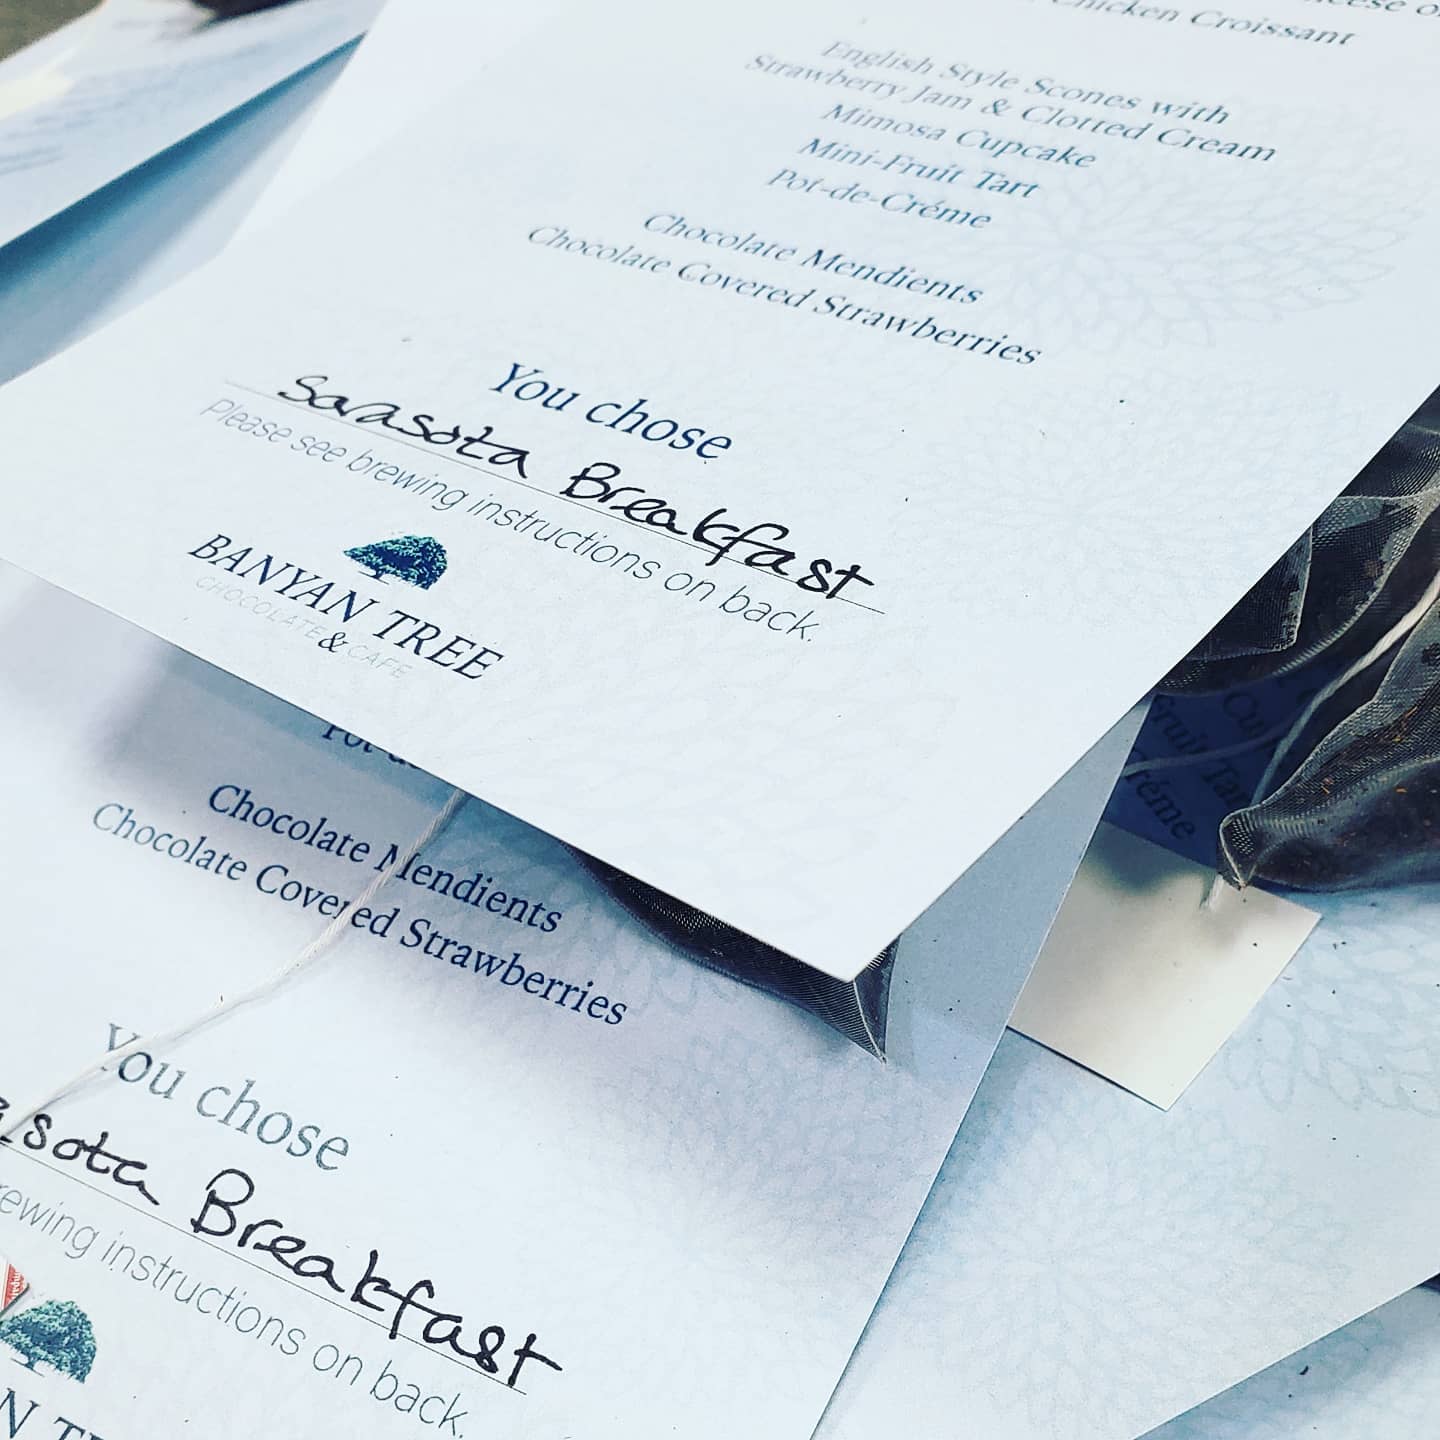 Chicken Croissant
English Style Scones with
Strawberry Jam & Clotted Cream
Mimosa Cupcake
Mini-Fruit Tart
Pot-de-Créme
Chocolate Mendients
Chocolate Covered Strawberries
You chose
Sarasota Breakfast
Please see brewing instructions on back.
BANYAN TREE
CHOCOLATE & CAFE
Chocolate Mendients
Chocolate Covered Strawberries
You chose
Breakfast
instructions on back.